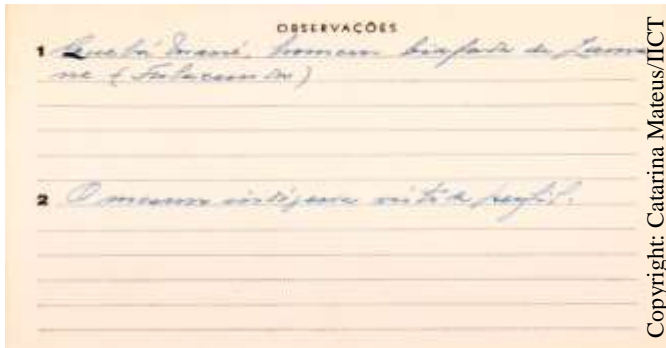 OBSERVAÇÕES
1 Quebá Mané, homem biafada de
ne (Fulacunda)
2 O mesmo indígena visto de perfil.
Copyright: Catarina Mateus/IICT